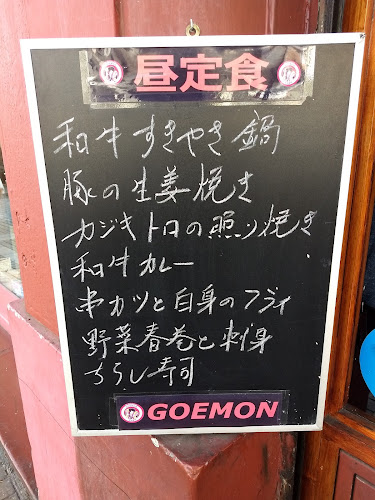 昼定食
和牛すきやき鍋
豚の生姜焼き
カジキトロの照り焼き
和牛カレー
串カツと白身のフライ
野菜春巻と刺身
ちらし寿司
GOEMON